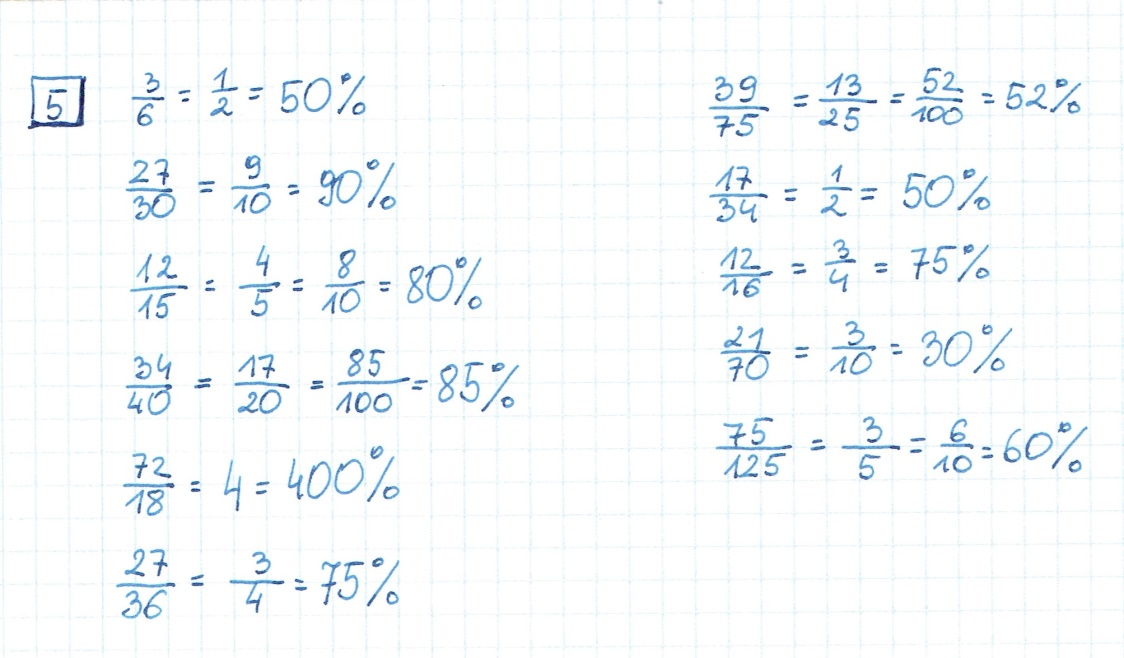 5
3/6 = 1/2 = 50%
27/30 = 9/10 = 90%
12/15 = 4/5 = 8/10 = 80%
34/40 = 17/20 = 85/100 = 85%
72/18 = 4 = 400%
27/36 = 3/4 = 75%
39/75 = 13/25 = 52/100 = 52%
17/34 = 1/2 = 50%
12/16 = 3/4 = 75%
21/70 = 3/10 = 30%
75/125 = 3/5 = 6/10 = 60%